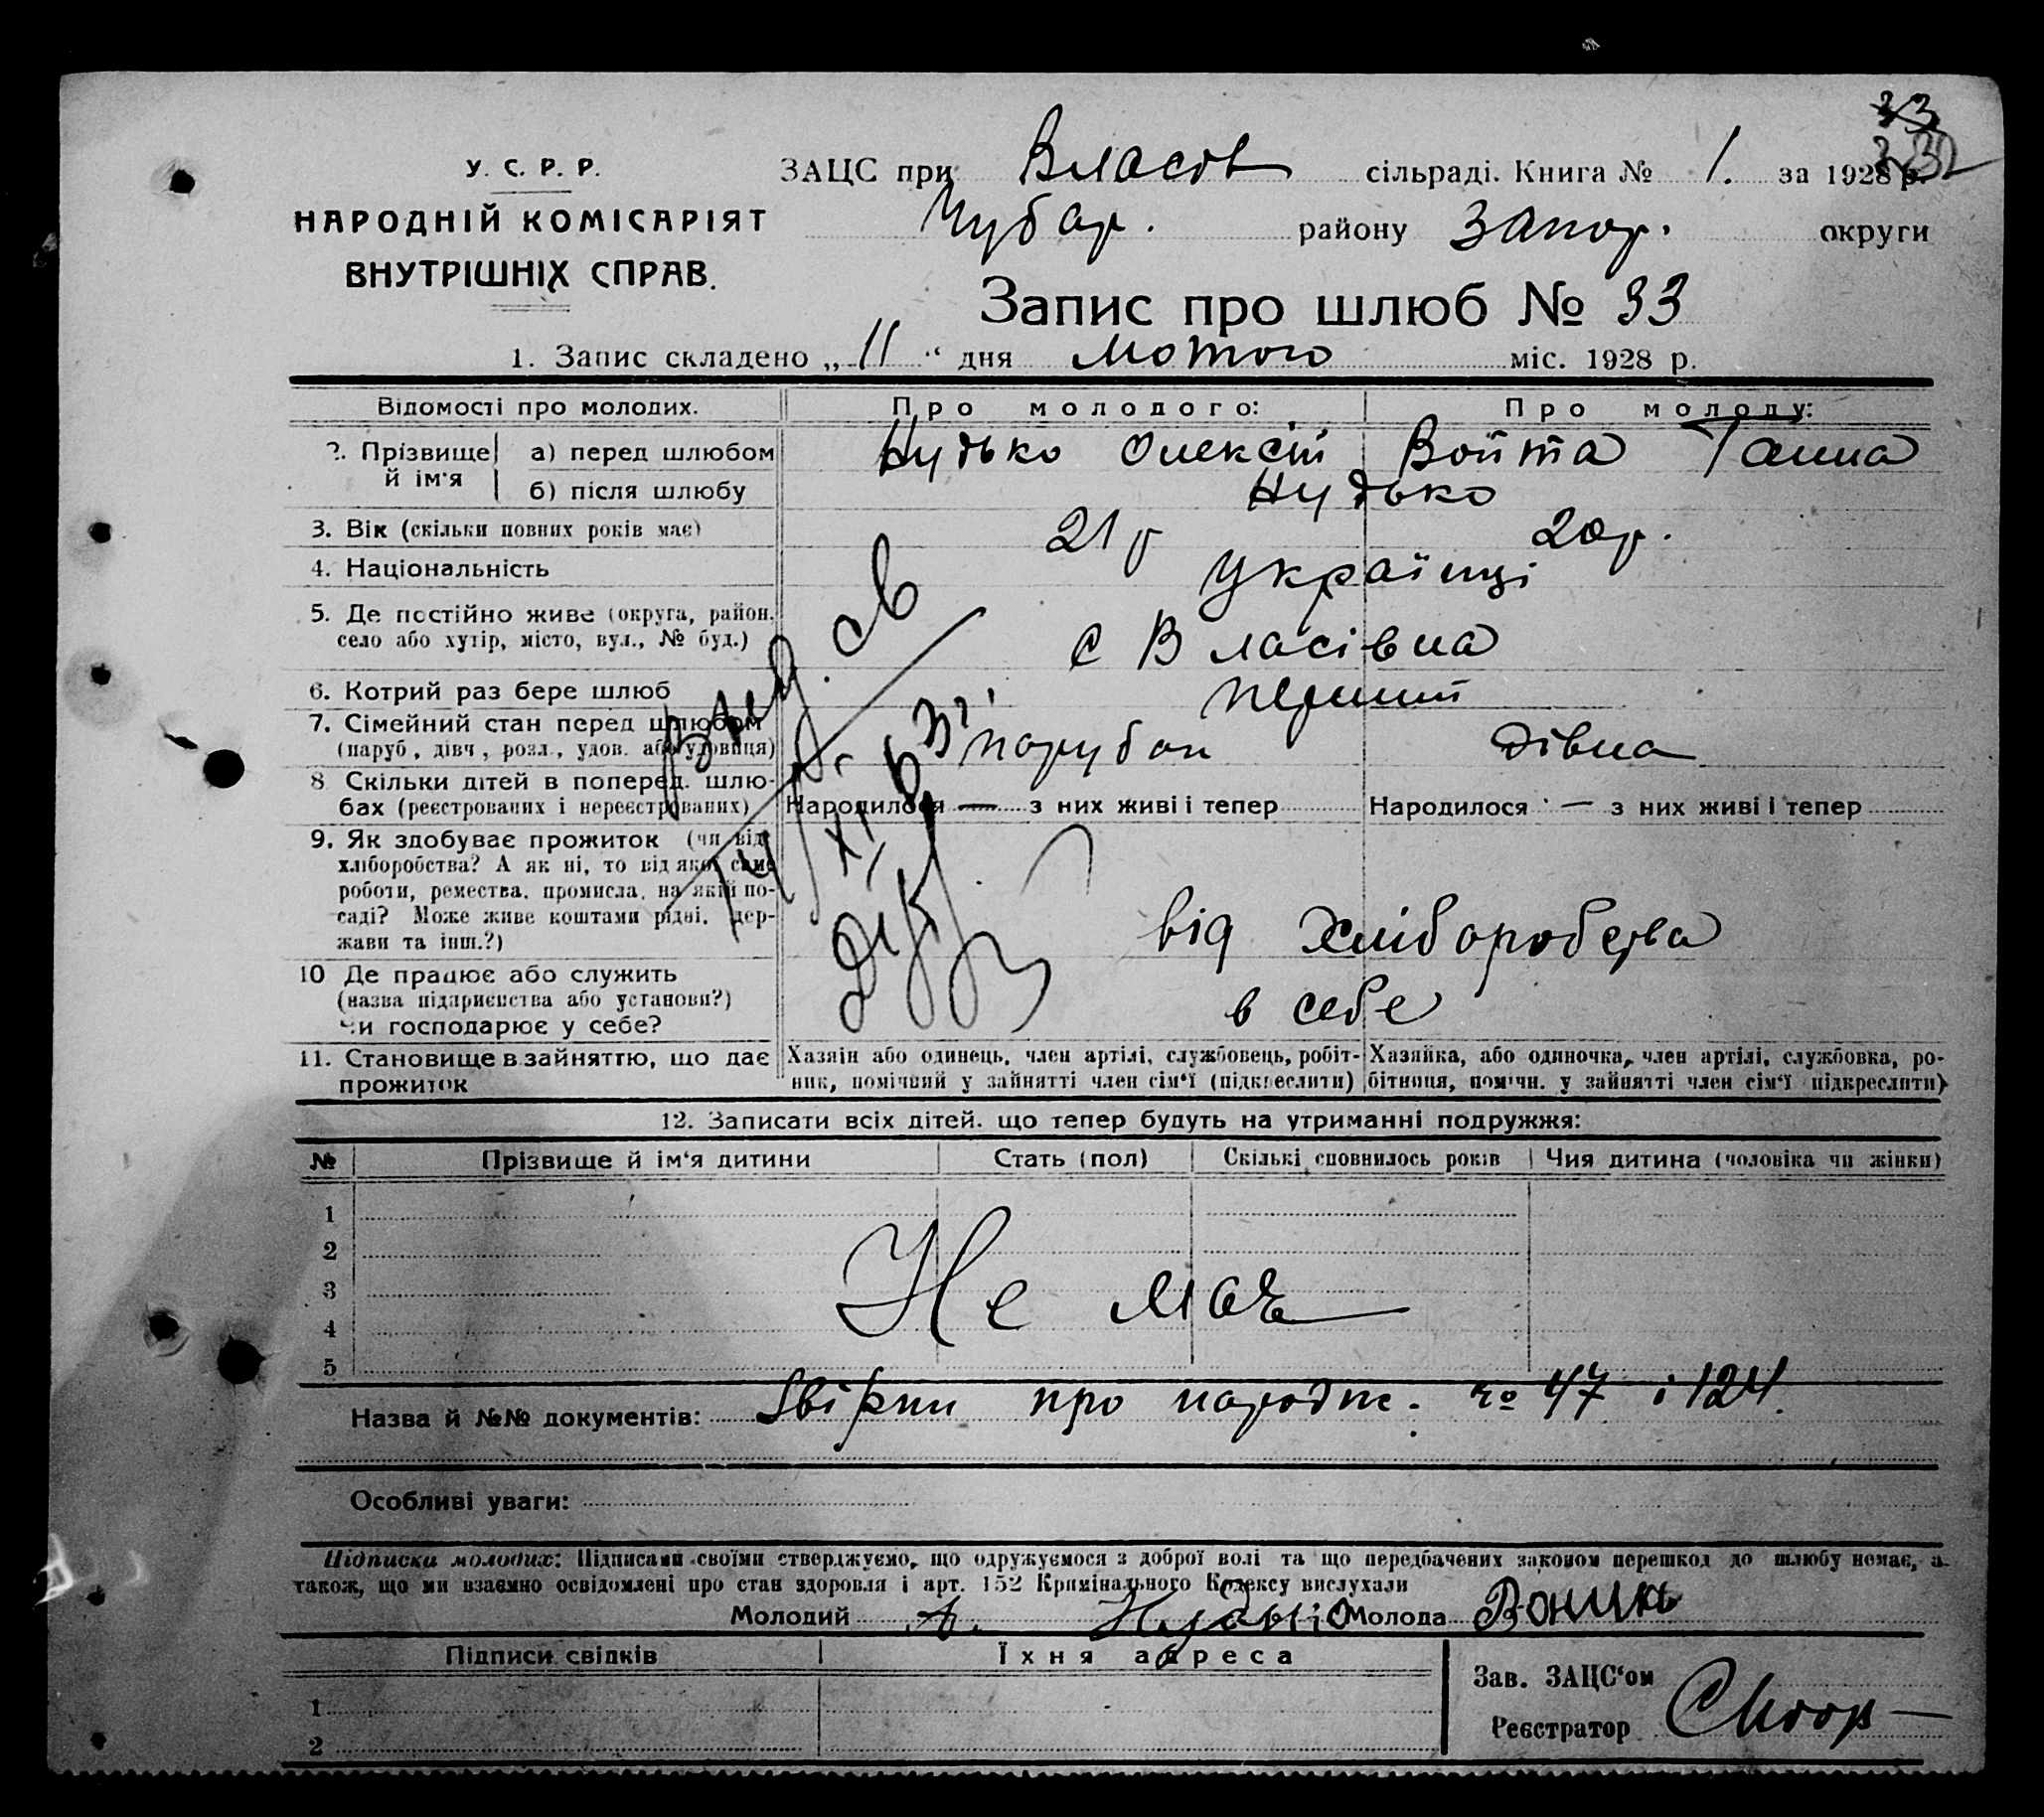 33
32
У. С. Р. Р.
НАРОДНІЙ КОМІСАРІЯТ
ВНУТРІШНІХ СПРАВ.
ЗАЦС при Власов сільраді. Книга № 1. за 1928 р.
Чубар. району Запор. округи
Запис про шлюб № 33
1. Запис складено „ 11 “ дня лютого міс. 1928 р.
Відомості про молодих. Про молодого: Про молоду:
2. Прізвище й ім'я а) перед шлюбом Нудько Олексій Война Ганна
б) після шлюбу Нудько
3. Вік (скільки повних років має) 21 р 20 р.
4. Національність Українці
5. Де постійно живе (округа, район, село або хутір, місто, вул., № буд.) с Власівка
6. Котрий раз бере шлюб перший
7. Сімейний стан перед шлюбом (паруб, дівч, розл., удов. або удовиця) парубок дівка
8 Скільки дітей в поперед. шлюбах (реєстрованих і нереєстрованих) Народилося — з них живі і тепер Народилося — з них живі і тепер
9. Як здобуває прожиток (чи від хліборобства? А як ні, то від якої саме роботи, ремества, промисла, на якій посаді? Може живе коштами рідні, держави та інш.?) від хліборобства
10 Де працює або служить (назва підприємства або установи?) Чи господарює у себе? в себе
11. Становище в зайняттю, що дає прожиток Хазяїн або одинець, член артілі, службовець, робітник, помічний у зайнятті член сім'ї (підкреслити) Хазяйка, або одиночка, член артілі, службовка, робітниця, помічн. у зайнятті член сім'ї підкреслити)
12. Записати всіх дітей, що тепер будуть на утриманні подружжя:
№ Прізвище й ім'я дитини Стать (пол) Скількі сповнилось років Чия дитина (чоловіка чи жінки)
1
2
3
4
5
Не має
Назва й №№ документів: Звірки про народж. № 47 і 124.
Особливі уваги:
Підписка молодих: Підписами своїми стверджуємо, що одружуємося з доброї волі та що передбачених законом перешкод до шлюбу немає, а
також, що ми взаємно освідомлені про стан здоровля і арт. 152 Кримінального Кодексу вислухали
Молодий А. Нудько Молода
Підписи свідків Їхня адреса
1
2
Зав. ЗАЦС'ом
Реєстратор